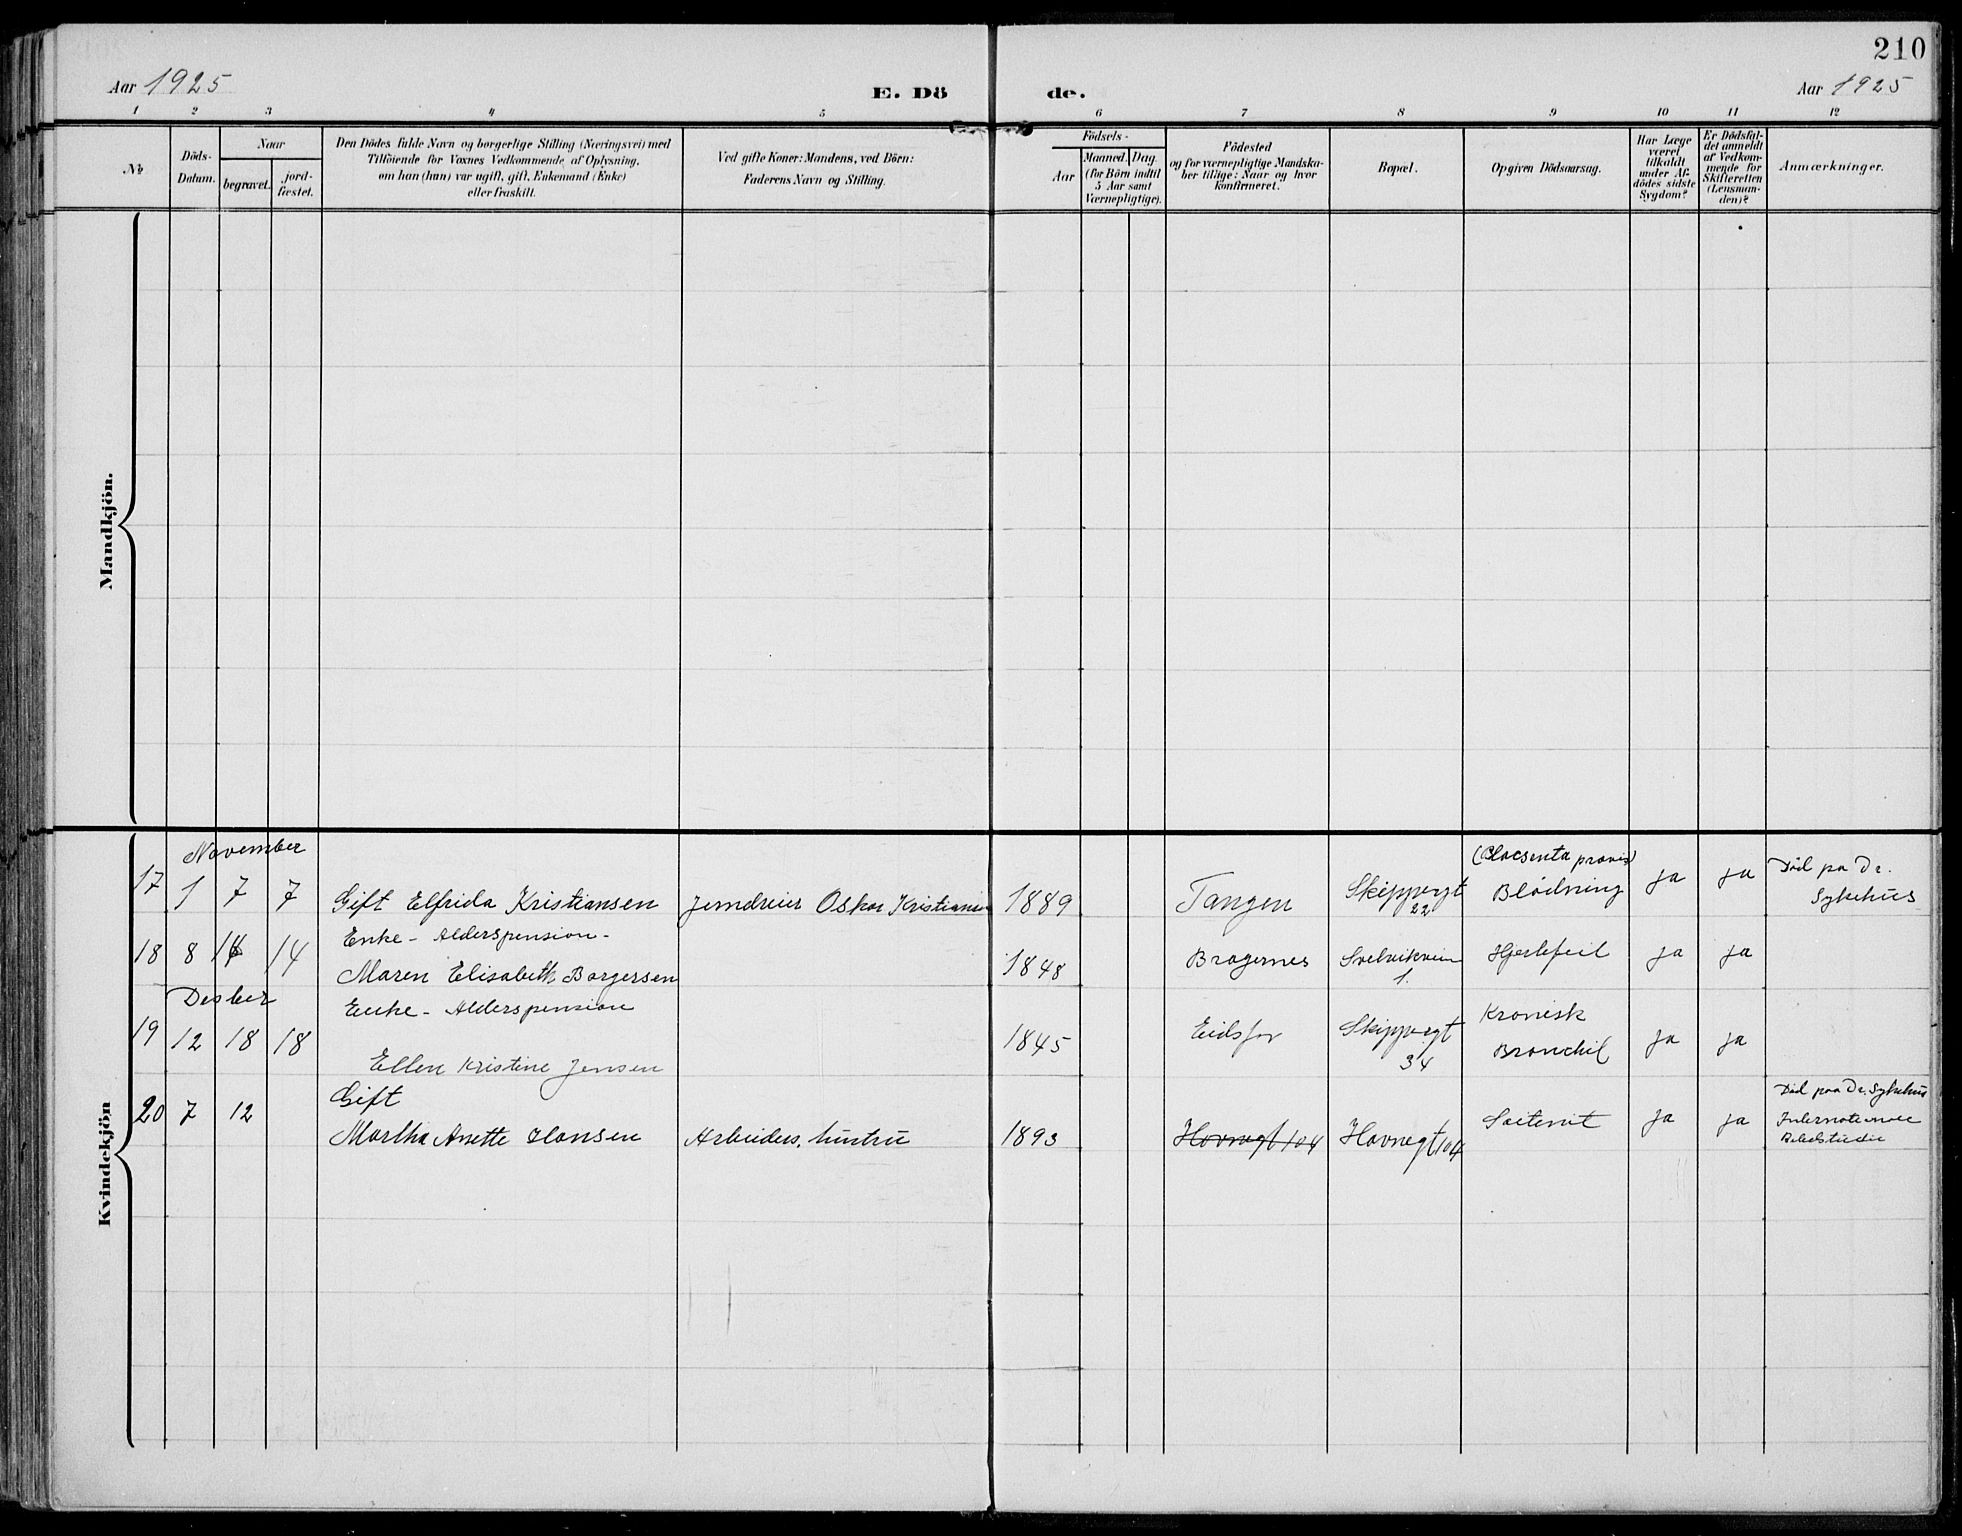 210
Aar 1925
E. Dö
de.
Aar 1925
1 2 3 4 5 6 7 8 9 10 11 12
No
Döds-
Datum.
Naar
begravet.
jord-
fæstet.
Den Dödes fulde Navn og borgerlige Stilling (Næringsvei) med
Tilföiende for Voxnes Vedkommende af Oplysning,
om han (hun) var ugift, gift, Enkemand (Enke)
eller fraskilt.
Ved gifte Koner: Mandens, ved Börn:
Faderens Navn og Stilling.
Födsels-
Aar
Maaned. Dag.
(for Börn indtil
5 Aar samt
Værnepligtige).
Födested
og for værnepligtige Mandska-
ber tillige: Naar og hvor
konfirmeret.
Bopæl.
Opgiven Dödsaarsag.
Har Læge
været
tilkaldt
under Af-
dödes sidste
Sygdom?
Er Dödsfal-
det anmeldt
af Vedkom-
mende for
Skifteretten
(Lensman-
den)?
Anmærkninger.
Mandkjön.
Kvindekjön
November
17 1 7 7 Gift Elfrida Kristiansen Jerndreier Oskar Kristiansen 1889 Tangen Skippergt
22
(Placenta prævia)
Blödning ja ja Död pa Dr.
Sykehus
18 8 14 14 Enke - Alderspension -
Maren Elisabeth Borgersen 1848 Bragernes Svelvikvein
1.
Hjertefeil ja ja
Desber
19 12 18 18 Enke - Alderspension
Ellen Kristine Jensen 1845 Eidsfos Skippergt
34
Kronisk
Bronchit ja ja
20 7 12 Gift
Martha Anette Hansen Arbeiders hustru 1893 Havnegt 104 Havnegt 104 ja ja Död paa Dr. Sykehus